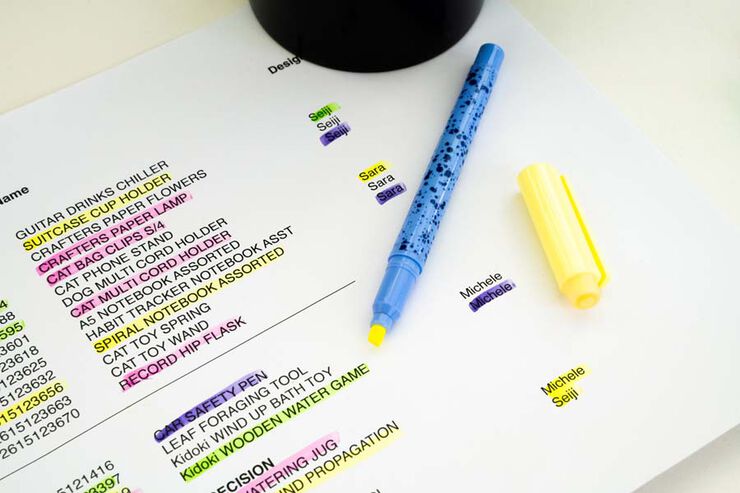 Name
GUITAR DRINKS CHILLER
SUITCASE CUP HOLDER
CRAFTERS PAPER FLOWERS
CRAFTERS PAPER LAMP
CAT BAG CLIPS S/4
CAT PHONE STAND
DOG MULTI CORD HOLDER
CAT MULTI CORD HOLDER
A5 NOTEBOOK ASSORTED
HABIT TRACKER NOTEBOOK ASST
SPIRAL NOTEBOOK ASSORTED
CAT TOY SPRING
CAT TOY WAND
RECORD HIP FLASK
CAR SAFETY PEN
LEAF FORAGING TOOL
Kidoki WIND UP BATH TOY
Kidoki WOODEN WATER GAME
ECISION
ATERING JUG
ND PROPAGATION
Desig
Seiji
Seiji
Seiji
Sara
Sara
Sara
Michele
Michele
Michele
Seiji
4
88
595
3601
23618
123625
5123632
615123656
615123663
2615123670
5121416
23397